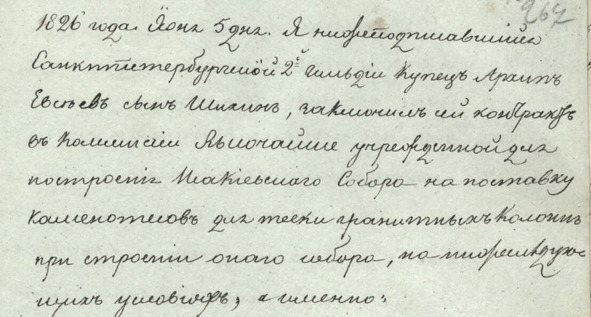 267
1826 года Июня 5 дня. Я нижеподписавшийся
Санктпетербургской 2й Гильдіи Купецъ Архипъ
Евсеевъ сынъ Шихинъ, заключилъ сей контрактъ
въ Коммиссіи Высочайше учрежденной для
построенія Исакіевскаго Собора на поставку
каменотесовъ для тески гранитныхъ Колоннъ
при строеніи онаго собора, на нижеследую-
щихъ условіяхъ, а именно: